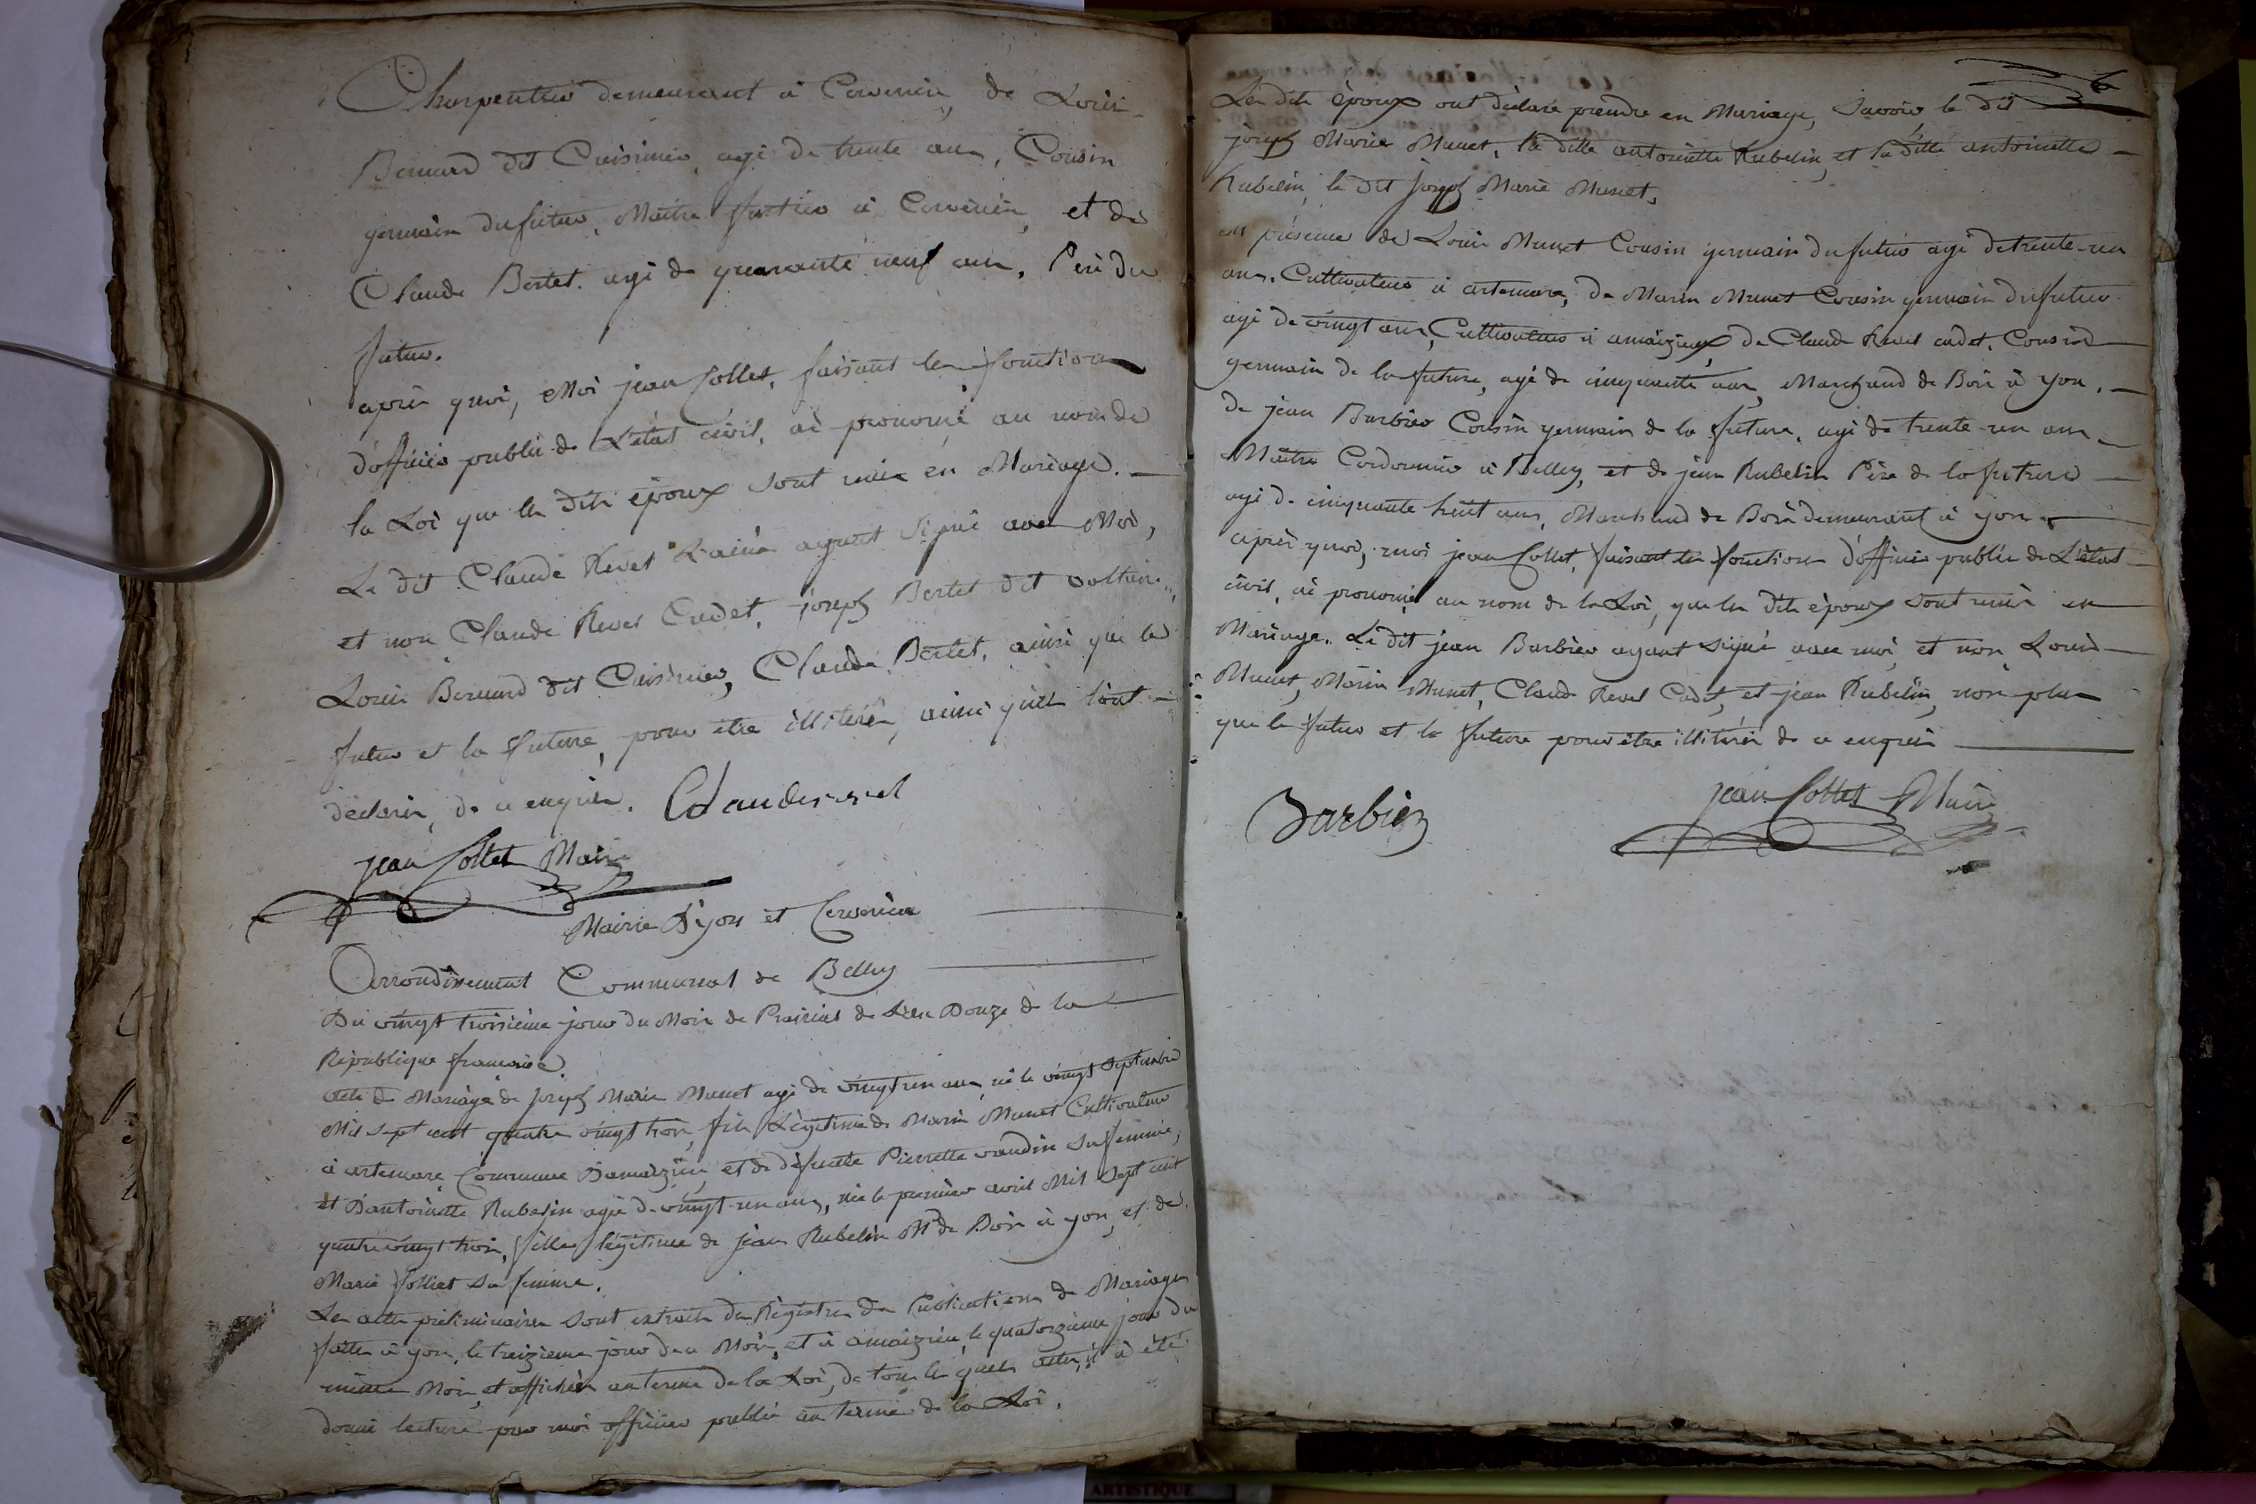 Charpentier demeurant à Cerverieu, de Louis
Bernard dit Cuisinier, agé de trente ans, Cousin
germain du futur, Maitre à Cerverieu, et de
Claude Bertet, agé de quarante neuf ans, Père du
futur.
après quoi, Moi jean Collet, faisant les fonctions
d'officier public de L'état civil, ai prononcé au nom de
la Loi que les dits époux sont unis en Mariage. —
Le dit Claude Revet L'ainé ayant signé avec Moi,
et non Claude Revet Cadet, joseph Bertet dit
Louis Bernard dit Cuisinier, Claude Bertet, ainsi que le
futur et la future, pour être illitérés, ainsi qu'ils l'ont
déclaré, de ce enquis. Claude revel
jean Collet Maire
Mairie D'yon et Cerverieu
Arrondissement Communal de Belley
Du vingt troisieme jour du Mois de Prairial de L'an Douze de la
République francaise.
acte de Mariage de joseph Marie Munet agé de vingt un ans, né le vingt Septembre
Mil sept cent quatre vingt trois, fils Légitime de Marin Munet Cultivateur
à artemare Commune D'amaizieu, et de défunte Pierrette vaudin sa femme,
et D'antoinette Rubelin agée de vingt-un ans, née le premier avril Mil Sept cent
quatre vingt trois, fille légitime de jean Rubelin Md de Bois à yon, et de
Marie folliet sa femme.
Les actes préliminaires sont extraits des Régistres des Publications de Mariages
faites à yon, le treizieme jour de ce Mois, et à amaizieu, le quatorzieme jour du
même Mois, et affichés au terme de la Loi, de tous les quels actes, il à été
donné lecture par moi officier public au terme de la Loi.
6
Les dits époux ont déclaré prendre en Mariage, Savoir le dit
joseph Marie Munet, la ditte antoinette Rubelin, et la ditte antoinette
Rubelin, le dit joseph Marie Munet,
en présence de Louis Munet Cousin germain du futur agé de trente-un
ans, Cultivateur à artemare, de Marin Munet Cousin germain du futur
agé de vingt ans, Cultivateur à amaizieux, de Claude Revet cadet, Cousin
germain de la future, agé de cinquante ans, Marchand de Bois à yon,
de jean Barbier Cousin germain de la future, agé de trente-un ans
Maitre Cordonnier à Belley, et de jean Rubelin Père de la future
agé de cinquante huit ans, Marchand de Bois demeurant à yon
après quoi, moi jean Collet, faisant les fonctions d'officier public de L'état
civil, ai prononcé au nom de la Loi, que les dits époux sont unis en
Mariage. Le dit jean Barbier ayant signé avec moi, et non Louis
Munet, Marin Munet, Claude Revet Cadet, et jean Rubelin, non plus
que le futur et la future pour être illitérés de ce enquis
Barbier
jean Collet Maire
ARTISTIQUE